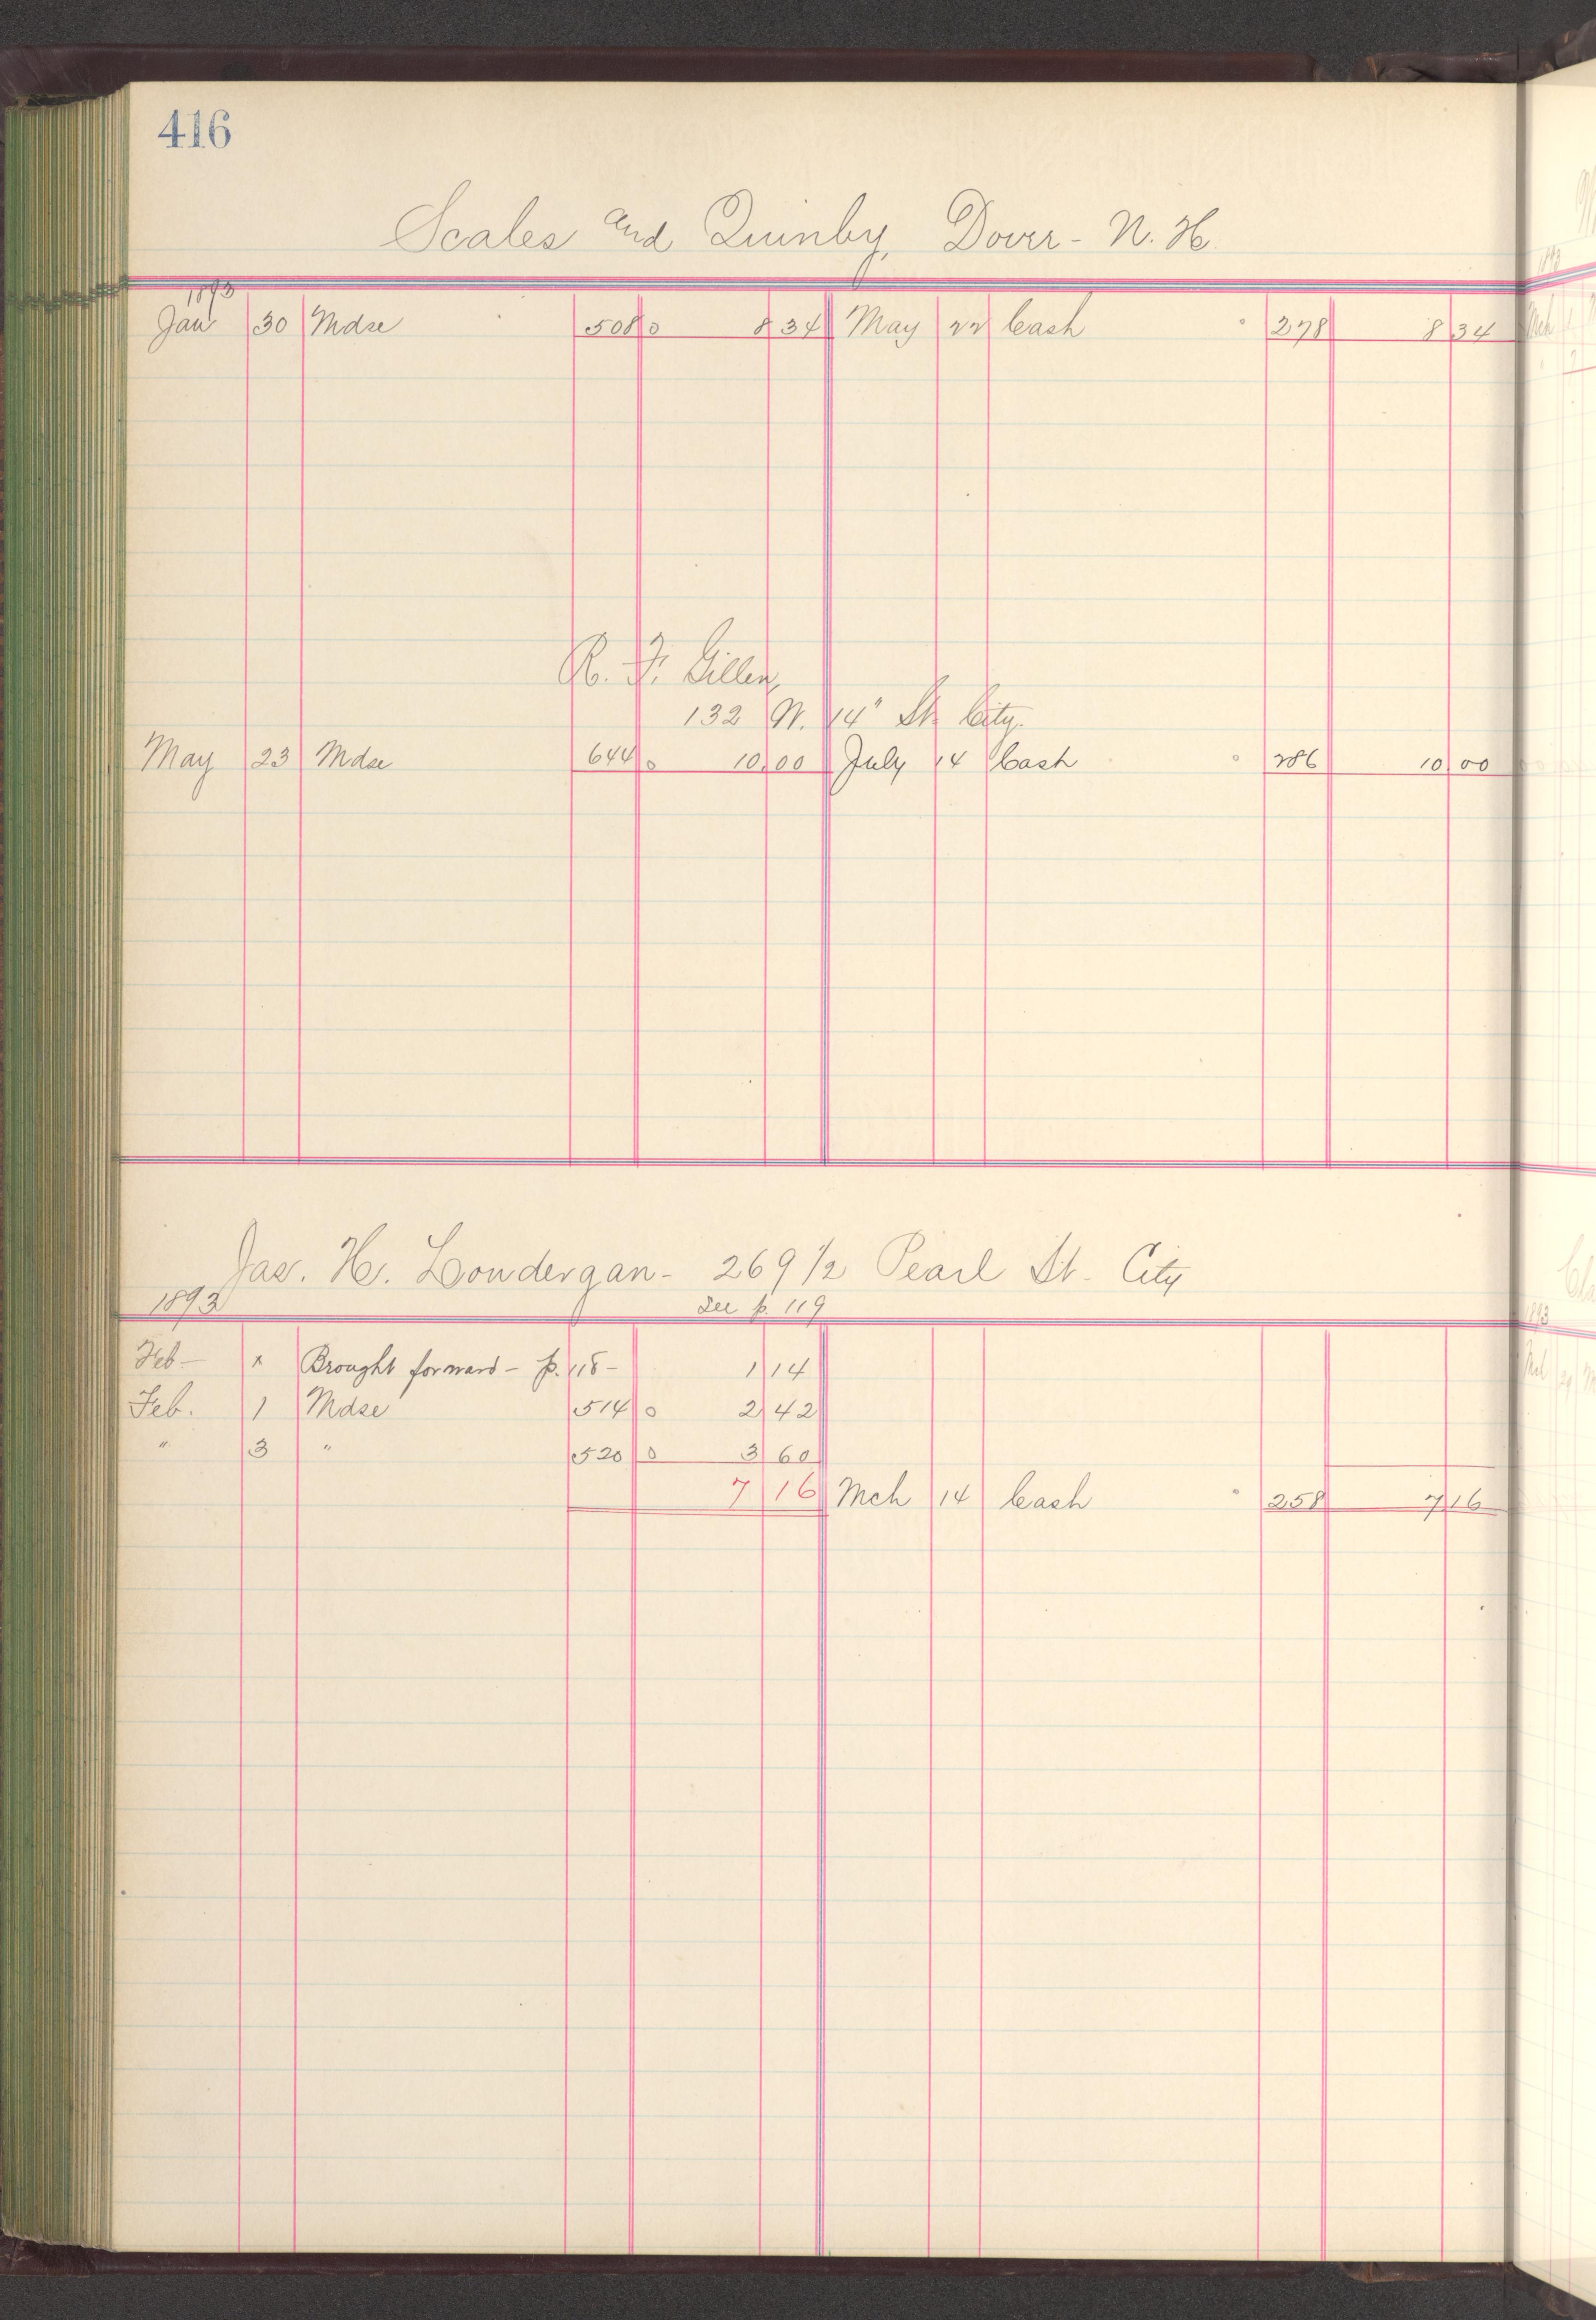 416
Scales and Quinby, Dover - N. H.
1893
Jan 30 Mdse 508 0 8 34 May 22 Cash 278 8 34
R. F. Gillen,
132 W. 14" St. City.
May 23 Mdse 644 0 10 00 July 14 Cash 286 10 00
Jas. H. Londergan - 269 1/2 Pearl St. City
1893 See p. 119
Feb - x Brought forward - p. 118 - 1 14
Feb. 1 Mdse 514 0 2 42
" 3 " 520 0 3 60
7 16 Mch 14 Cash 258 7 16